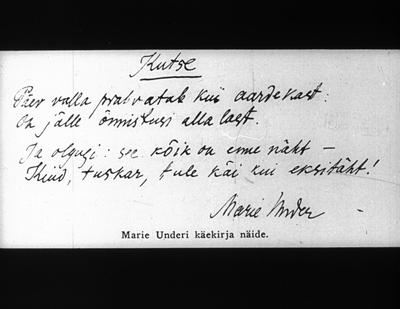 Kutse
Päev valla prahvatab kui aardekast:
On jälle õnnistusi alla last.
Ja olgugi: see kõik on enne näht –
Kuid, tuskar, tule käi kui eksitäht!
Marie Under
Marie Underi käekirja näide.